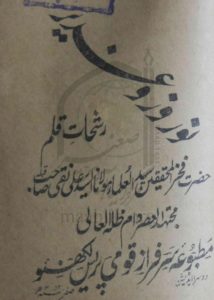 نوروز و غدیر
رشحات قلم
حضرت فخر المحققین سید العلماء مولانا السید علی نقی صاحب قبلہ
مجتہد العصر دام ظلہ العالی
مطبوعہ سرفراز قومی پریس لکھنؤ
دوسرا ایڈیشن